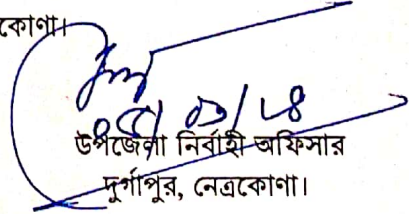 কোণা।
উপজেলা নির্বাহী অফিসার
দুর্গাপুর, নেত্রকোণা।